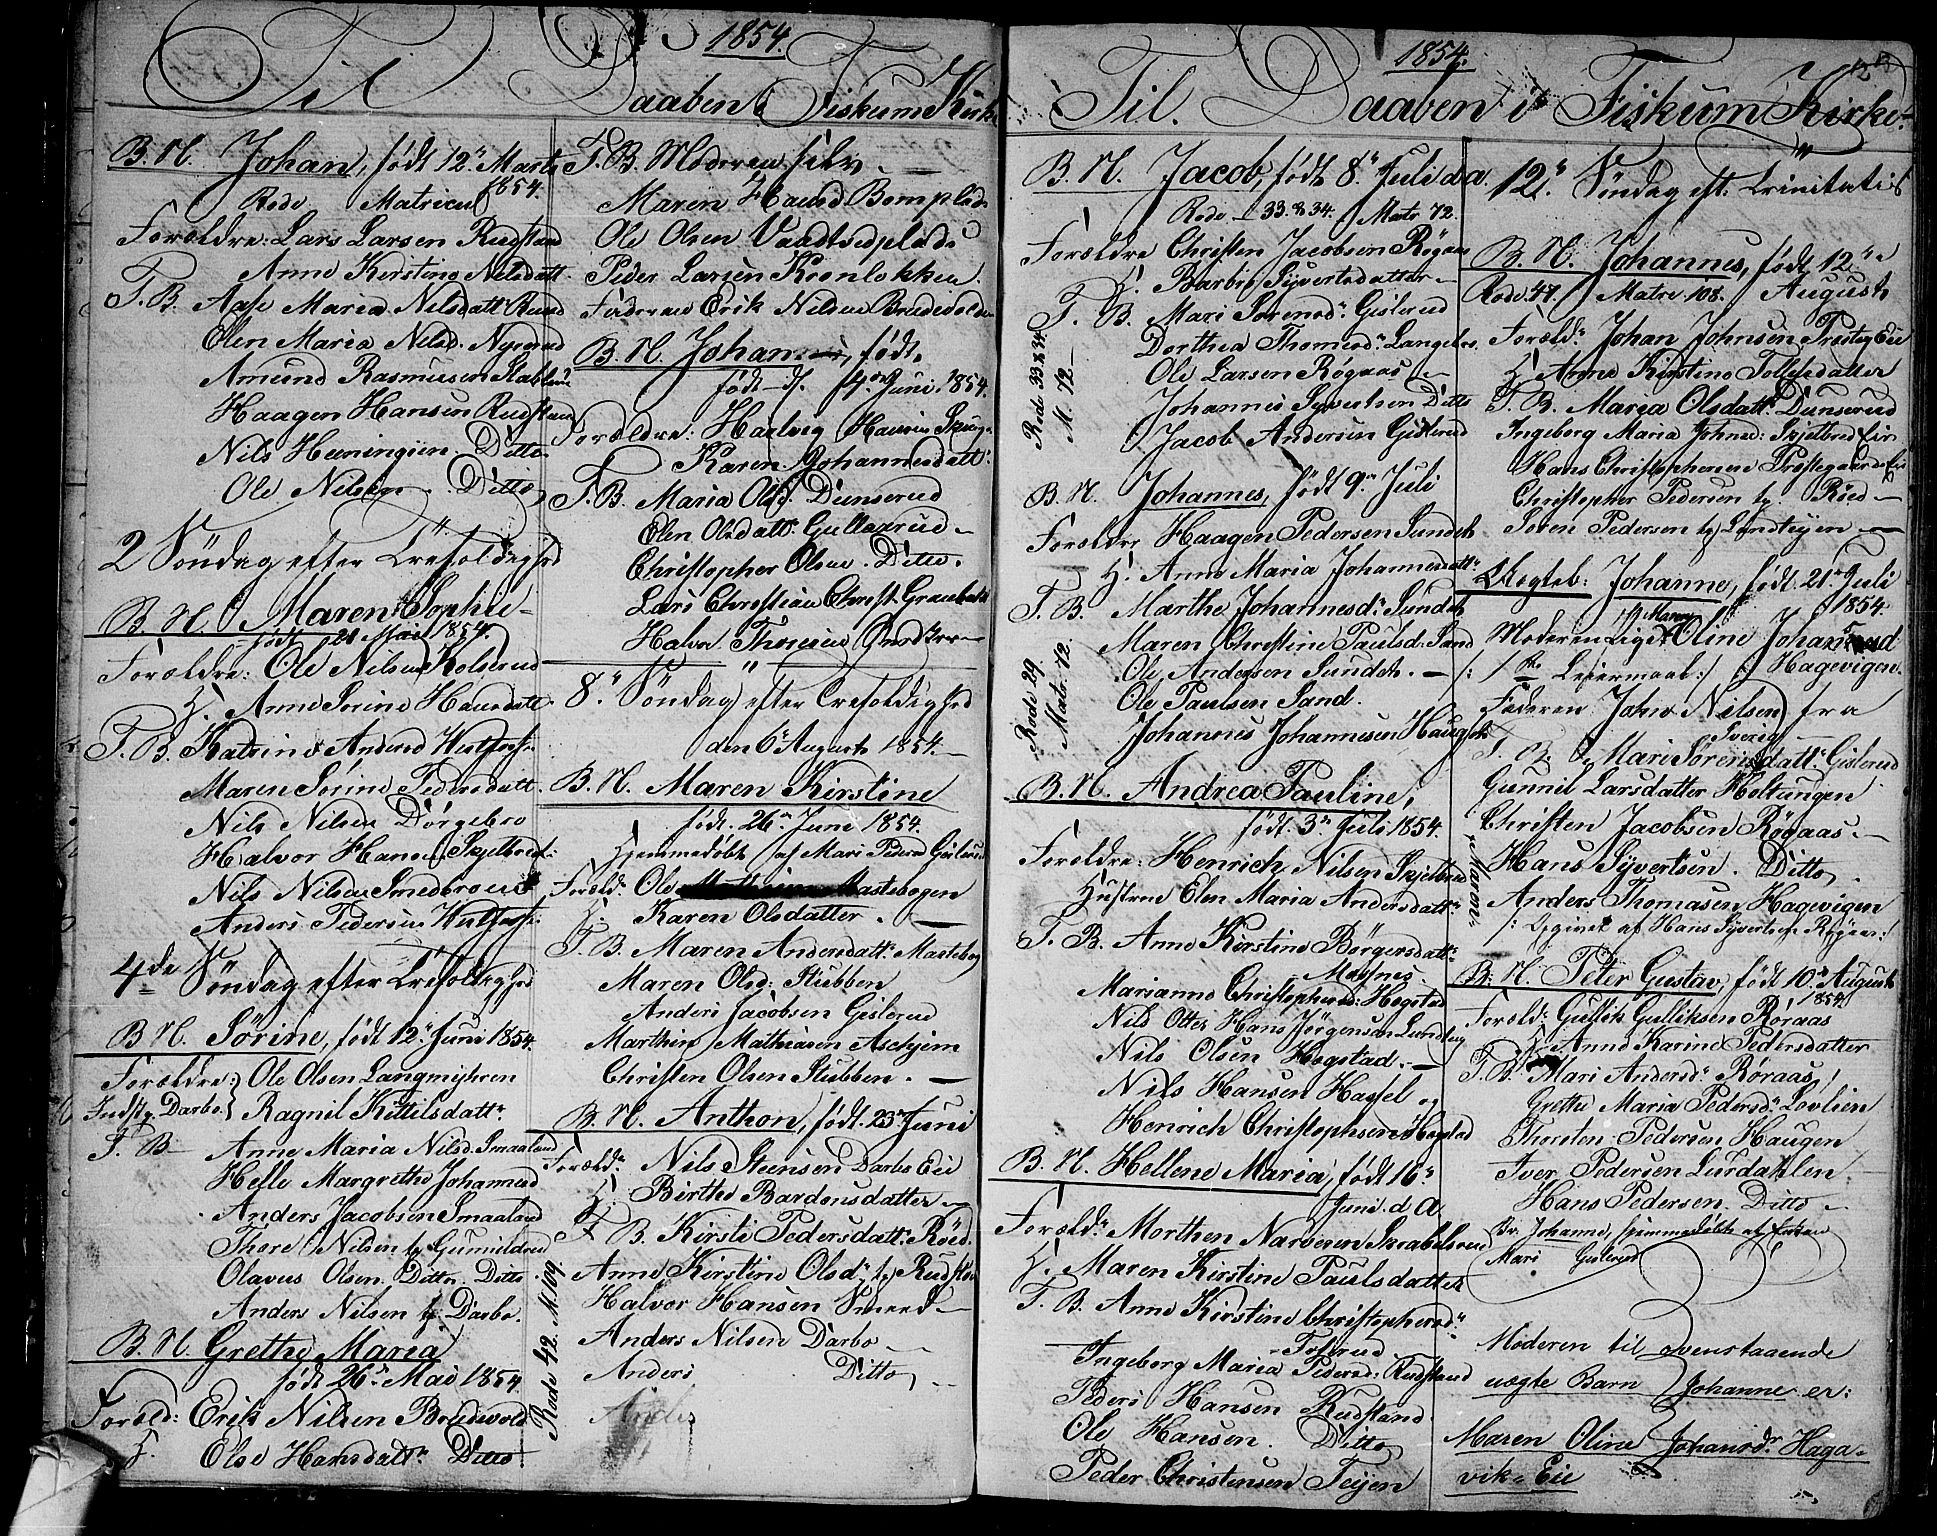 1854.
Til Daaben i Fiskum Kirke
B. N. Johan, født 12. Marts
1854.
Rode Matricul
Forældre: Lars Larsen Rudstand
Anne Kirstine Nilsdatt.
F. B. Aase Maria Nilsdatt
Elen Maria Nilsd.
Amund Rasmusen
Haagen Hansen Rudstand
Nils Henningsen Ditto
Ole Nilsen. Ditto
2 Søndag efter Trefoldighed
B. N. Maren Sophie
født 21 Mai 1854.
Forældre: Ole Nilsen Kolserud
H. Anne Sørine Hansdatt.
F. B. Katrine Andersd
Maren Sørine Pedersdatt.
Nils Nilsen Dørgebro
Halvor Hansen Skjelbred
Nils Nilsen Smedbround
Anders Pedersen
4de Søndag efter Trefoldighed
B. N. Sørine, født 12. Juni 1854.
Forældre: Ole Olsen Langmyhren
Indst. Darbo. Ragnil Kittilsdatt.
F. B. Anne Maria Nilsd. Smaaland
Helle Margrethe Johannesd
Anders Jacobsen Smaaland
Thore Nilsen tj. Gunnildrud
Olavus Olsen. Ditto. Ditto
Anders Nilsen tj. Darbo.
B. N. Grethe Maria
født 26. Mai 1854
Foræld: Erik Nilsen Bredevold
H. Olse Hansdatt. Ditto.
F. B. Moderen selv
Maren Hansd
Ole Olsen
Peder Larsen Kronløkken
Faderen Erik Nilsen Bredevolden
B. N. Johan, født
født d. 4. Juni. 1854.
Forældre: Hartvig Hansen
Karen Johannesdatt.
F. B. Maria Olsd. Dunserud
Elen Olsdatt. Gullaarud
Christopher Olsen. Ditto.
Lars Christian Christ.
Halvor Thoresen
8. Søndag efter Trefoldighed
den 6. August 1854.
B. N. Maren Kirstine
født. 26. Juni 1854.
Hjemmedøbt af Mari Peders Gislerud
Foræld. Ole Mastebogen
H. Karen Olsdatter.
F. B. Maren Andersdatt. Mastebog
Maren Olsd. Stubben
Anders Jacobsen Gislerud
Marthin Mathiasen Aschjem
Christen Olsen Stubben.
B. N. Anthon, født. 23 Juni
Foræld. Nils Steensen Darbo Eie
H. Birthe Bardonsdatter
F. B. Kirsti Pedersdatt. Røed
Anne Kirstine Olsd. tj. Rudstand
Halvor Hansen Smed
Anders Nilsen Darbo
Anders Ditto
Rode 42. M. 109.
1854.
12
Til Daaben i Fiskum Kirke
B. N. Jacob, født 8. Juli d. a.
Rode 33. & 34. Matr 72.
Forældre Christen Jacobsen Røgaas
H. Barbro Syvertsdatter
F. B. Mari Sørensd. Gislerud
Dorthea Thomesd. Langebro
Ole Larsen Røgaas
Johannes Syvertsen Ditto
Jacob Andersen Gislerud
Rode 33 & 34.
M. 72.
B. N. Johannes, født 9. Juli
Forældre Haagen Pedersen Sundet
H. Anne Maria Johannesdatt.
F. B. Marthe Johannesd. Sundet
Maren Christine Paulsd. Sand
Ole Andersen Sundet.
Ole Paulsen Sand.
Johannes Johannesen Haugen
Rode 29.
Matr. 72.
B. N. Andrea Pauline,
født. 3. Juli 1854.
Forældre: Henrich Nilsen Skjelbred
Hustrue Elen Maria Andersdatt.
F. B. Anne Kirstine Børgersdatt.
Møgnes
Marianne Christophersd. Hogstad
Nils Otter Hans Jørgensen Lundteg
Nils Olsen Hogstad.
Nils Hansen Hassel og
Henrich Christophersen Hogstad
B. N. Hellene Maria, født 16.
Juni. d. A.
Foræld. Morthen Narvesen Skrabelsrud
H. Maren Kirstine Paulsdatter
F. B. Anne Kirstine Christophersd.
Foslrud
Ingeborg Maria Pedersd. Rudstand
Peder Hansen Rudstand.
Ole Hansen. Ditto
Peder Christensen Teijen
12. Søndag eft. Trinitatis
B. N. Johannes, født 12.
Rode. 47. Matr. 108. August
Foræld. Johan Johnsen Præsteg Eie
H. Anne Kirstine Tollefsdatter
F. B. Maria Olsdatt. Dunserud
Ingeborg Maria Johnsd: Skjelbred Eie
Hans Christophersen Præstegaards Eie
Christopher Pedersen tj. Røed
Søren Pedersen tj. Landteijen
Uægteb: Johanne, født 21. Juli
1854.
Moderen Pige Maren Oline Johansd
Hagevigen
/: 1ste Leiermaal :/
Faderen John Nilsen fra
Sverig
F. B. Mari Sørensdatt. Gislerud
Gunnil Larsdatter Holtungen
Christen Jacobsen Røgaas
Hans Syvertsen. Ditto
Anders Thomasen Hagevigen
/: Opgivet af Hans Syvertsen Røgaas :/
Maren
B. N. Peter Gustav, født 10. August
1854
Foræld. Gullik Gulliksen Røraas
H. Anne Karine Pedersdatter
F. B. Mari Andersd. Røraas
Grethe Maria Pedersd. Lovlien
Thorsten Pedersen Haugen
Iver Pedersen Lurdahlen
Hans Pedersen. Ditto
Br. Johanne, hjemmedøbt af Enken
Mari Gislerud
Moderen til ovenstaaende
uægte Barn Johanne er:
Maren Oline Johansdr. Haga-
vik= Eie